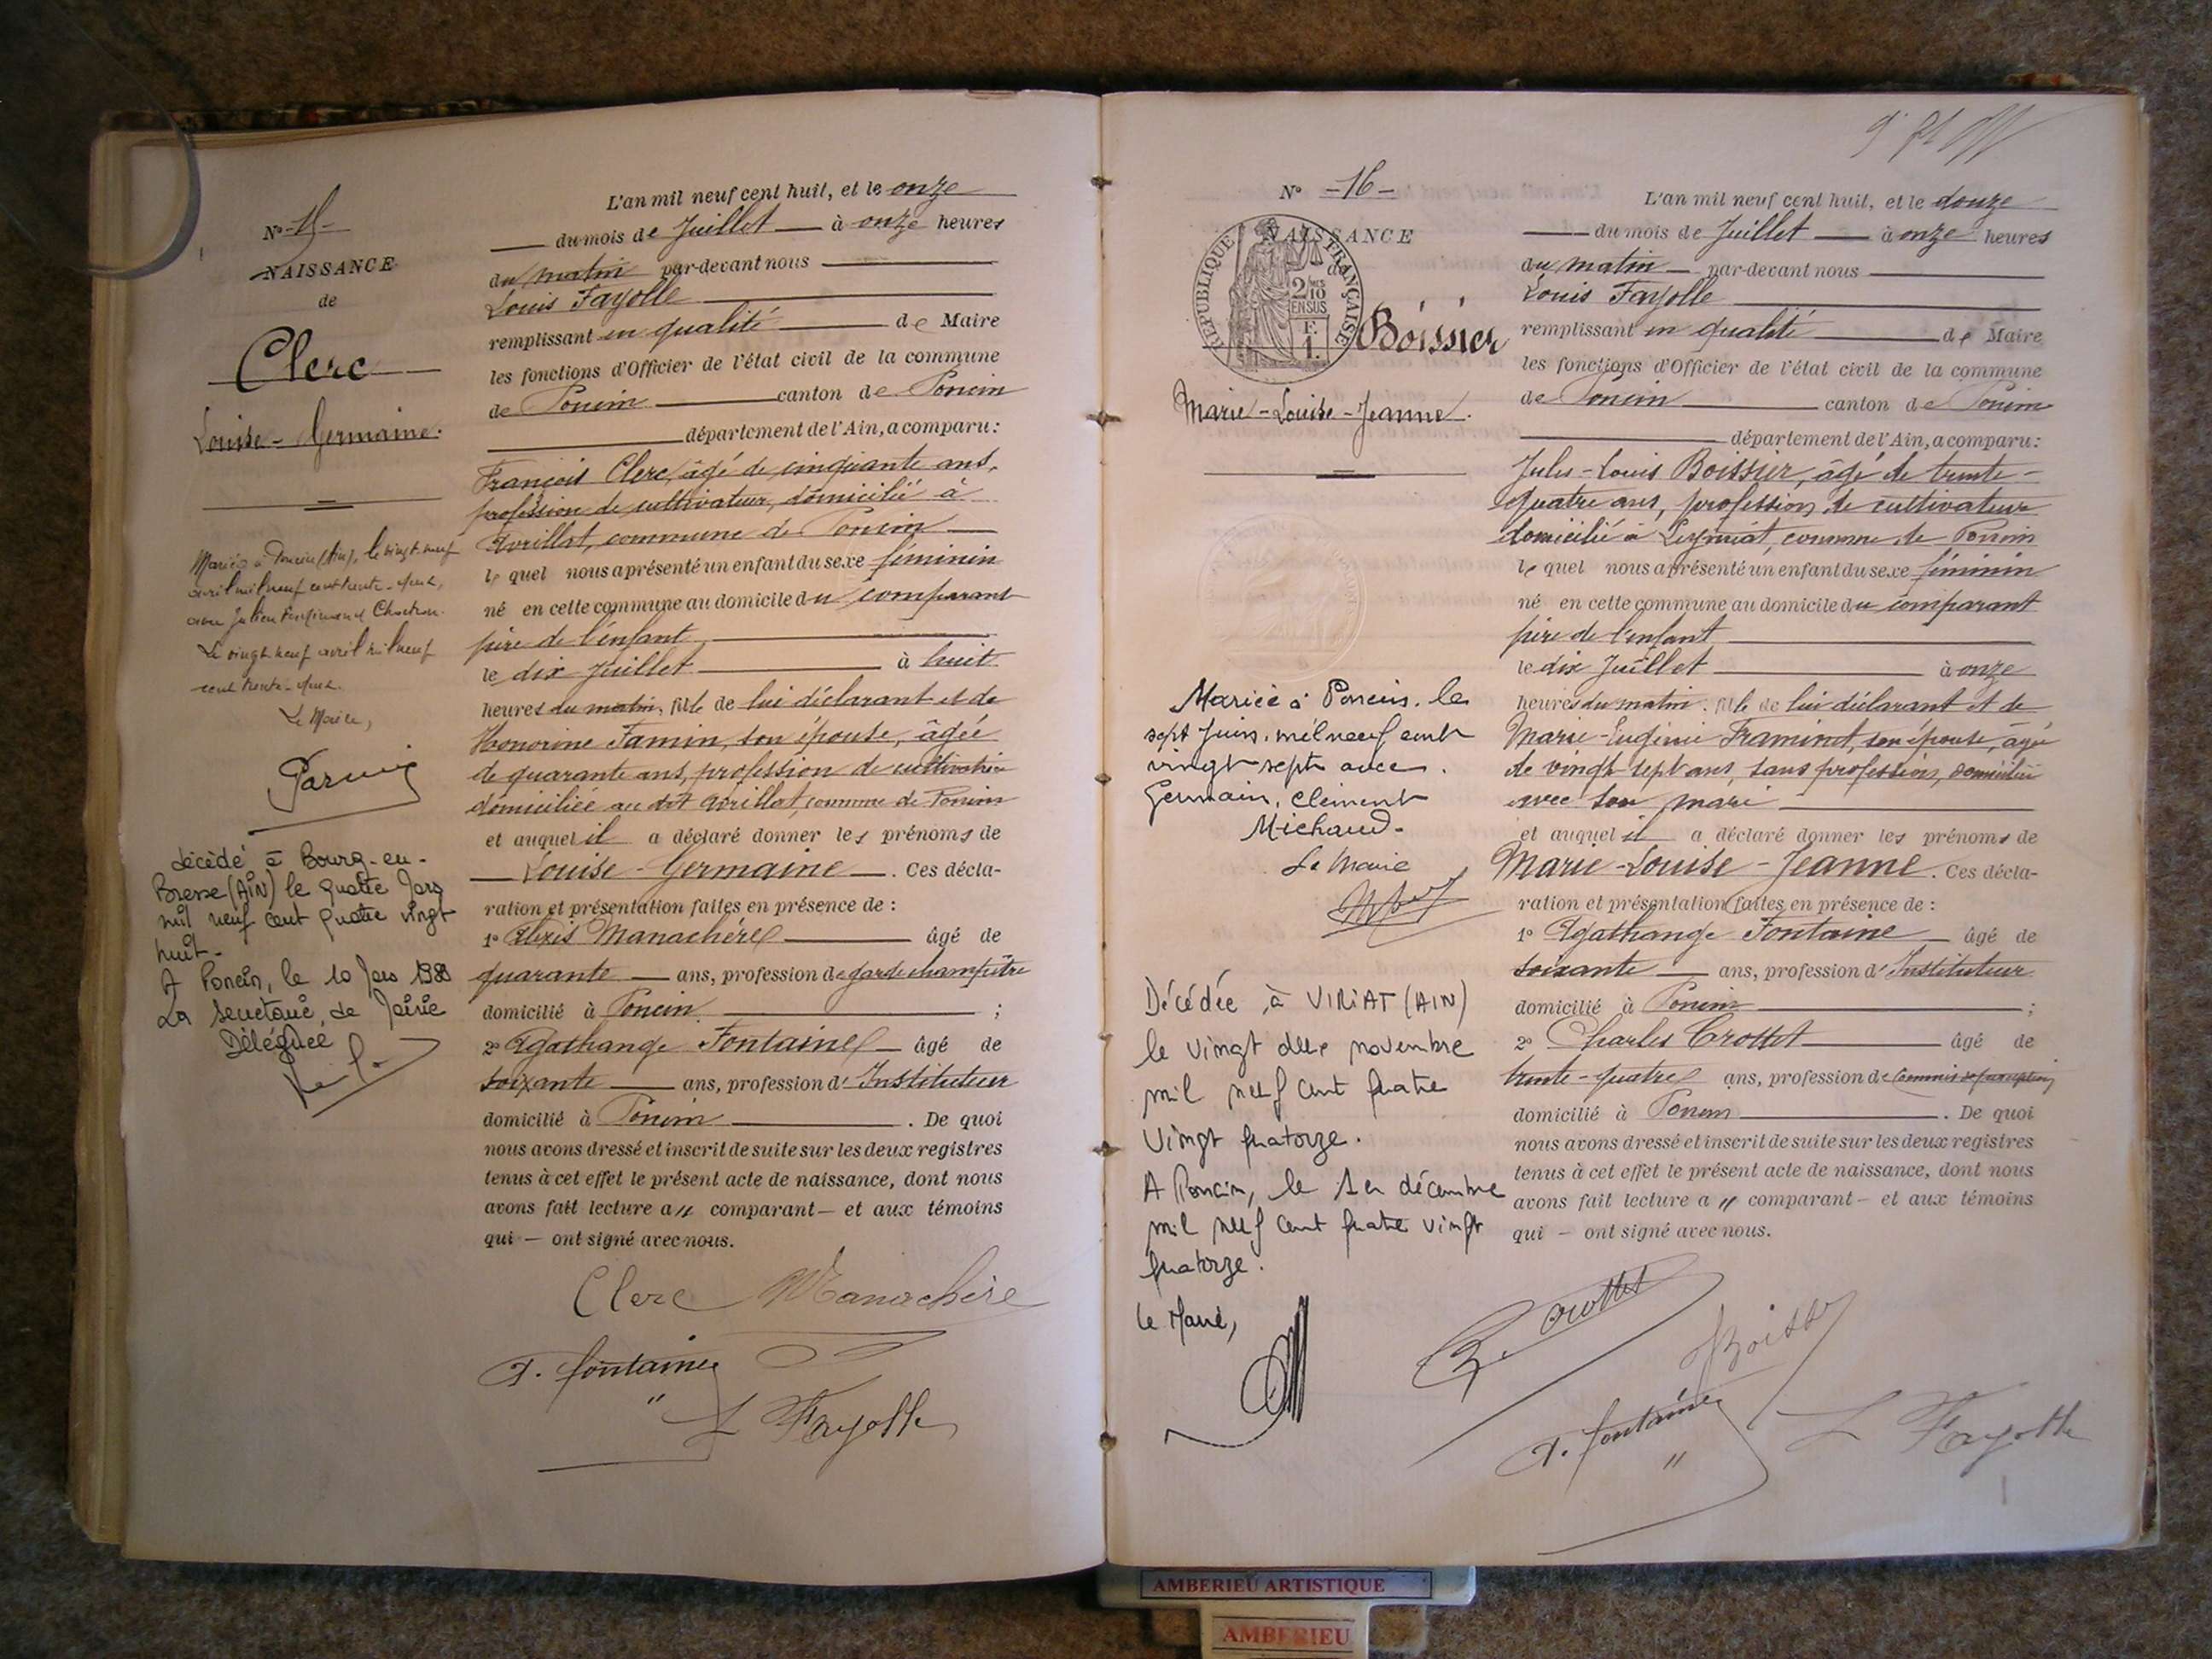 N° 15
NAISSANCE
de
Clerc
Louise-Germaine.
Mariée à Poncin (Ain), le vingt neuf
avril mil neuf cent trente-deux,
avec Julien Ferdinand
Le vingt neuf avril mil neuf
cent trente-deux.
Le Maire,
décédé à Bourg-en-
Bresse (AIN) le quatre Mars
mil neuf cent quatre vingt
huit-
A Poncin, le 10 Mars 1988
La Secrétaire de Mairie
Déléguée
L'an mil neuf cent huit, et le onze
du mois de Juillet à onze heures
du matin par-devant nous
Louis Fayolle
remplissant en qualité de Maire
les fonctions d'Officier de l'état civil de la commune
de Poncin canton de Poncin
département de l'Ain, a comparu:
François Clerc, âgé de cinquante ans,
profession de cultivateur, domicilié à
Avrillat, commune de Poncin
le quel nous a présenté un enfant du sexe féminin
né en cette commune au domicile du comparant
père de l'enfant
le dix Juillet à huit
heures du matin, fille de lui déclarant et de
Honorine Famin, son épouse, âgée
de quarante ans, profession de cultivatrice
domiciliée au dit Avrillat, commune de Poncin
et auquel il a déclaré donner les prénoms de
Louise-Germaine. Ces décla-
ration et présentation faites en présence de :
1° Alexis Manachère âgé de
quarante ans, profession de garde champêtre
domicilié à Poncin ;
2° Agathange Fontaine âgé de
soixante ans, profession d'Instituteur
domicilié à Poncin. De quoi
nous avons dressé et inscrit de suite sur les deux registres
tenus à cet effet le présent acte de naissance, dont nous
avons fait lecture a〃 comparant — et aux témoins
qui — ont signé avec nous.
Clerc Manachère
A. fontaine
L Fayolle
N° -16-
NAISSANCE
de
REPUBLIQUE FRANÇAISE
2/10 EN SUS
F. 1.
Boissier
Marie-Louise-Jeanne.
Mariée à Poncin, le
sept Juin, mil neuf cent
vingt sept avec
Germain, Clément
Michaud-
Le Maire
Décédée à VIRIAT (AIN)
le vingt deux novembre
mil neuf cent quatre
vingt quatorze.
A Poncin, le 1er décembre
mil neuf cent quatre vingt
quatorze.
Le Maire,
L'an mil neuf cent huit, et le douze
du mois de Juillet à onze heures
du matin par-devant nous
Louis Fayolle
remplissant en qualité de Maire
les fonctions d'Officier de l'état civil de la commune
de Poncin canton de Poncin
département de l'Ain, a comparu:
Jules-Louis Boissier, âgé de trente-
quatre ans, profession de cultivateur
domicilié à Leymiat, commune de Poncin
le quel nous a présenté un enfant du sexe féminin
né en cette commune au domicile du comparant
père de l'enfant
le dix Juillet à onze
heures du matin, fille de lui déclarant et de
Marie-Eugénie Framinet, son épouse, âgée
de vingt-sept ans, sans profession, domiciliée
avec son mari
et auquel il a déclaré donner les prénoms de
Marie-Louise-Jeanne. Ces décla-
ration et présentation faites en présence de :
1° Agathange Fontaine âgé de
soixante ans, profession d'Instituteur
domicilié à Poncin ;
2° Charles Crottet âgé de
trente-quatre ans, profession de Commis de perception
domicilié à Poncin. De quoi
nous avons dressé et inscrit de suite sur les deux registres
tenus à cet effet le présent acte de naissance, dont nous
avons fait lecture a 〃 comparant — et aux témoins
qui — ont signé avec nous.
Crottet
Boissier
A. fontaine
L Fayolle
AMBERIEU ARTISTIQUE
AMBERIEU